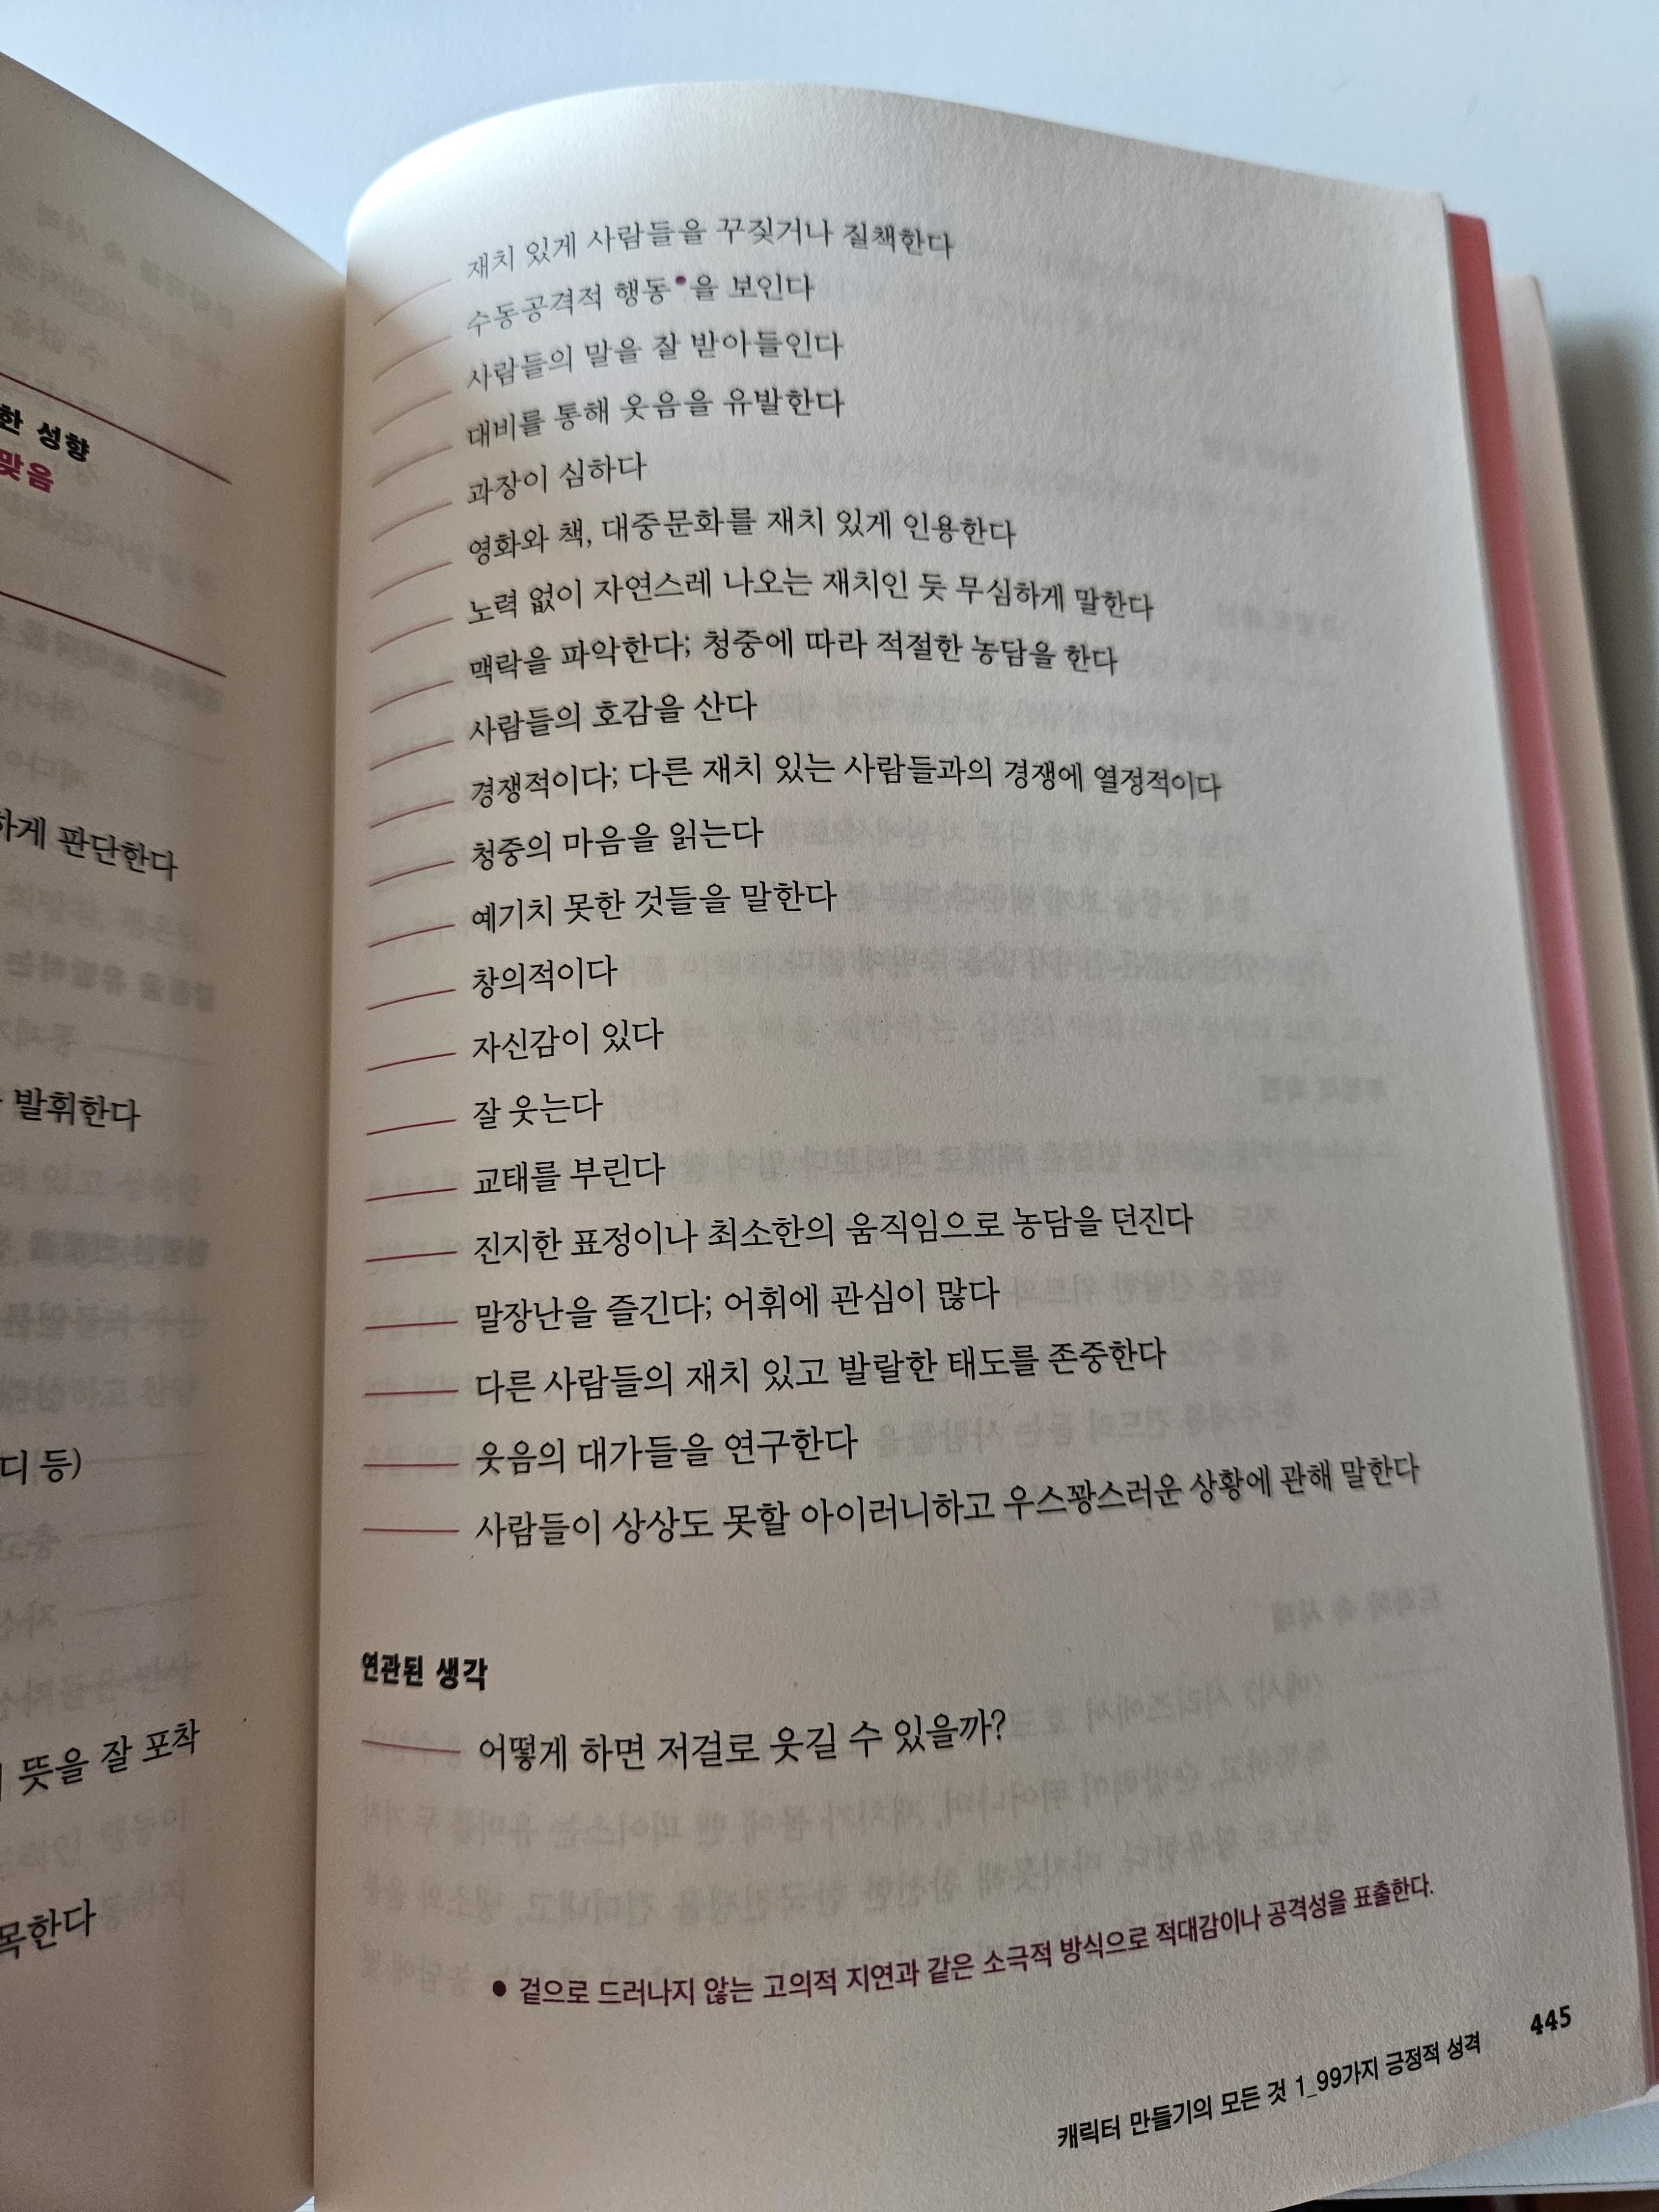 한 성향
맞음
하게 판단한다
발휘한다
디 등)
뜻을 잘 포착
목한다
재치 있게 사람들을 꾸짖거나 질책한다
수동공격적 행동•을 보인다
사람들의 말을 잘 받아들인다
대비를 통해 웃음을 유발한다
과장이 심하다
영화와 책, 대중문화를 재치 있게 인용한다
노력 없이 자연스레 나오는 재치인 듯 무심하게 말한다
맥락을 파악한다; 청중에 따라 적절한 농담을 한다
사람들의 호감을 산다
경쟁적이다; 다른 재치 있는 사람들과의 경쟁에 열정적이다
청중의 마음을 읽는다
예기치 못한 것들을 말한다
창의적이다
자신감이 있다
잘 웃는다
교태를 부린다
진지한 표정이나 최소한의 움직임으로 농담을 던진다
말장난을 즐긴다; 어휘에 관심이 많다
다른 사람들의 재치 있고 발랄한 태도를 존중한다
웃음의 대가들을 연구한다
사람들이 상상도 못할 아이러니하고 우스꽝스러운 상황에 관해 말한다
연관된 생각
어떻게 하면 저걸로 웃길 수 있을까?
• 겉으로 드러나지 않는 고의적 지연과 같은 소극적 방식으로 적대감이나 공격성을 표출한다.
캐릭터 만들기의 모든 것 1_99가지 긍정적 성격 445